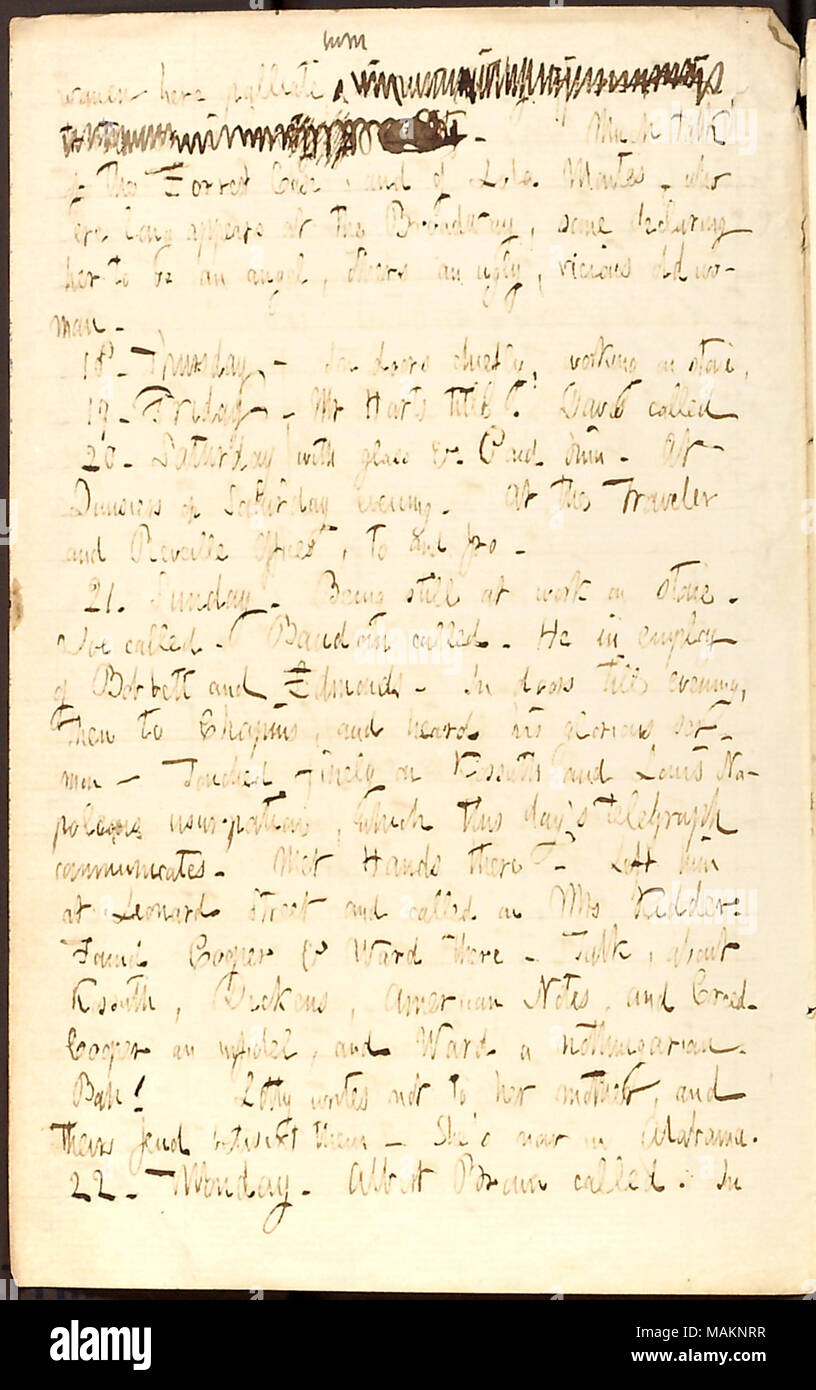 him
women here palliate
Much talk
of the Forrest Case, and of Lola Montes, who
ere long appears at the Broadway, some declaring
her to be an angel, others an ugly, vicious old wo-
man.
18. Thursday. In doors chiefly, working on stone.
19. Friday. Mr Harts title. Davis called
20. Saturday with glass &c. Paid him. At
Divisions of Saturday evening. At the Traveler
and Reveille Offices, to and fro.
21. Sunday. Being still at work on stone.
Joe called. Baudoin called. He in employ
of Bobbett and Edmonds. In doors till evening,
then to Chapins, and heard his glorious ser-
mon — Touched finely on Kossuth and Louis Na-
poleons usurpation, which this day's telegraph
communicates. Met Hands there. Left him
at Leonard Street and called on Mrs Kidder.
Found Cooper & Ward there. Talk, about
Kossuth, Dickens, American Notes, and Creed.
Cooper an infidel, and Ward a nothingarian.
Bah! Lotty writes not to her mother, and
theirs feud betwixt them — She's now in Alabama.
22. Monday. Albert Brown called. In
alamy
Image ID: MAKNRR
www.alamy.com